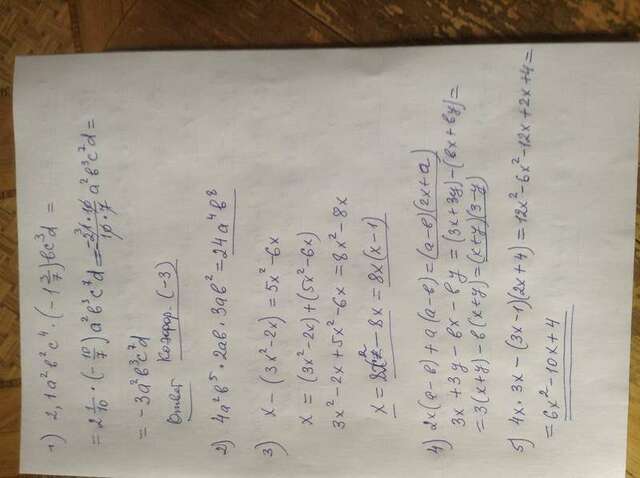 1) 2,1a²b²c⁴ · (-1 3/7)bc³d =
= 2 1/10 · (- 10/7) a²b³c⁷d = -21 · 10 / 10 · 7 a²b³c⁷d =
= -3a²b³c⁷d
Ответ Коэффор. (-3)
2) 4a²b⁵ · 2ab · 3ab² = 24a⁴b⁸
3) x - (3x² - 2x) = 5x² - 6x
x = (3x² - 2x) + (5x² - 6x)
3x² - 2x + 5x² - 6x = 8x² - 8x
x = 8x² - 8x = 8x(x - 1)
4) 2x(a - b) + a(a - b) = (a - b)(2x + a)
3x + 3y - bx - by = (3x + 3y) - (bx + by) =
= 3(x + y) - b(x + y) = (x + y)(3 - y)
5) 4x · 3x - (3x - 1)(2x + 4) = 12x² - 6x² - 12x + 2x + 4 =
= 6x² - 10x + 4